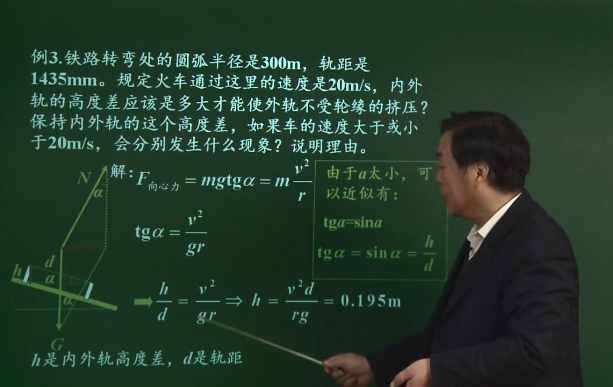 例3.铁路转弯处的圆弧半径是300m，轨距是
1435mm。规定火车通过这里的速度是20m/s，内外
轨的高度差应该是多大才能使外轨不受轮缘的挤压？
保持内外轨的这个高度差，如果车的速度大于或小
于20m/s，会分别发生什么现象？说明理由。
解：F向心力 = mgtgα = m v²/r
由于a太小，可
以近似有：
tga=sina
tgα = sinα = h/d
tgα = v²/gr
h/d = v²/gr ⇒ h = v²d/rg = 0.195m
N
α
d
h
α
α
G
h是内外轨高度差，d是轨距